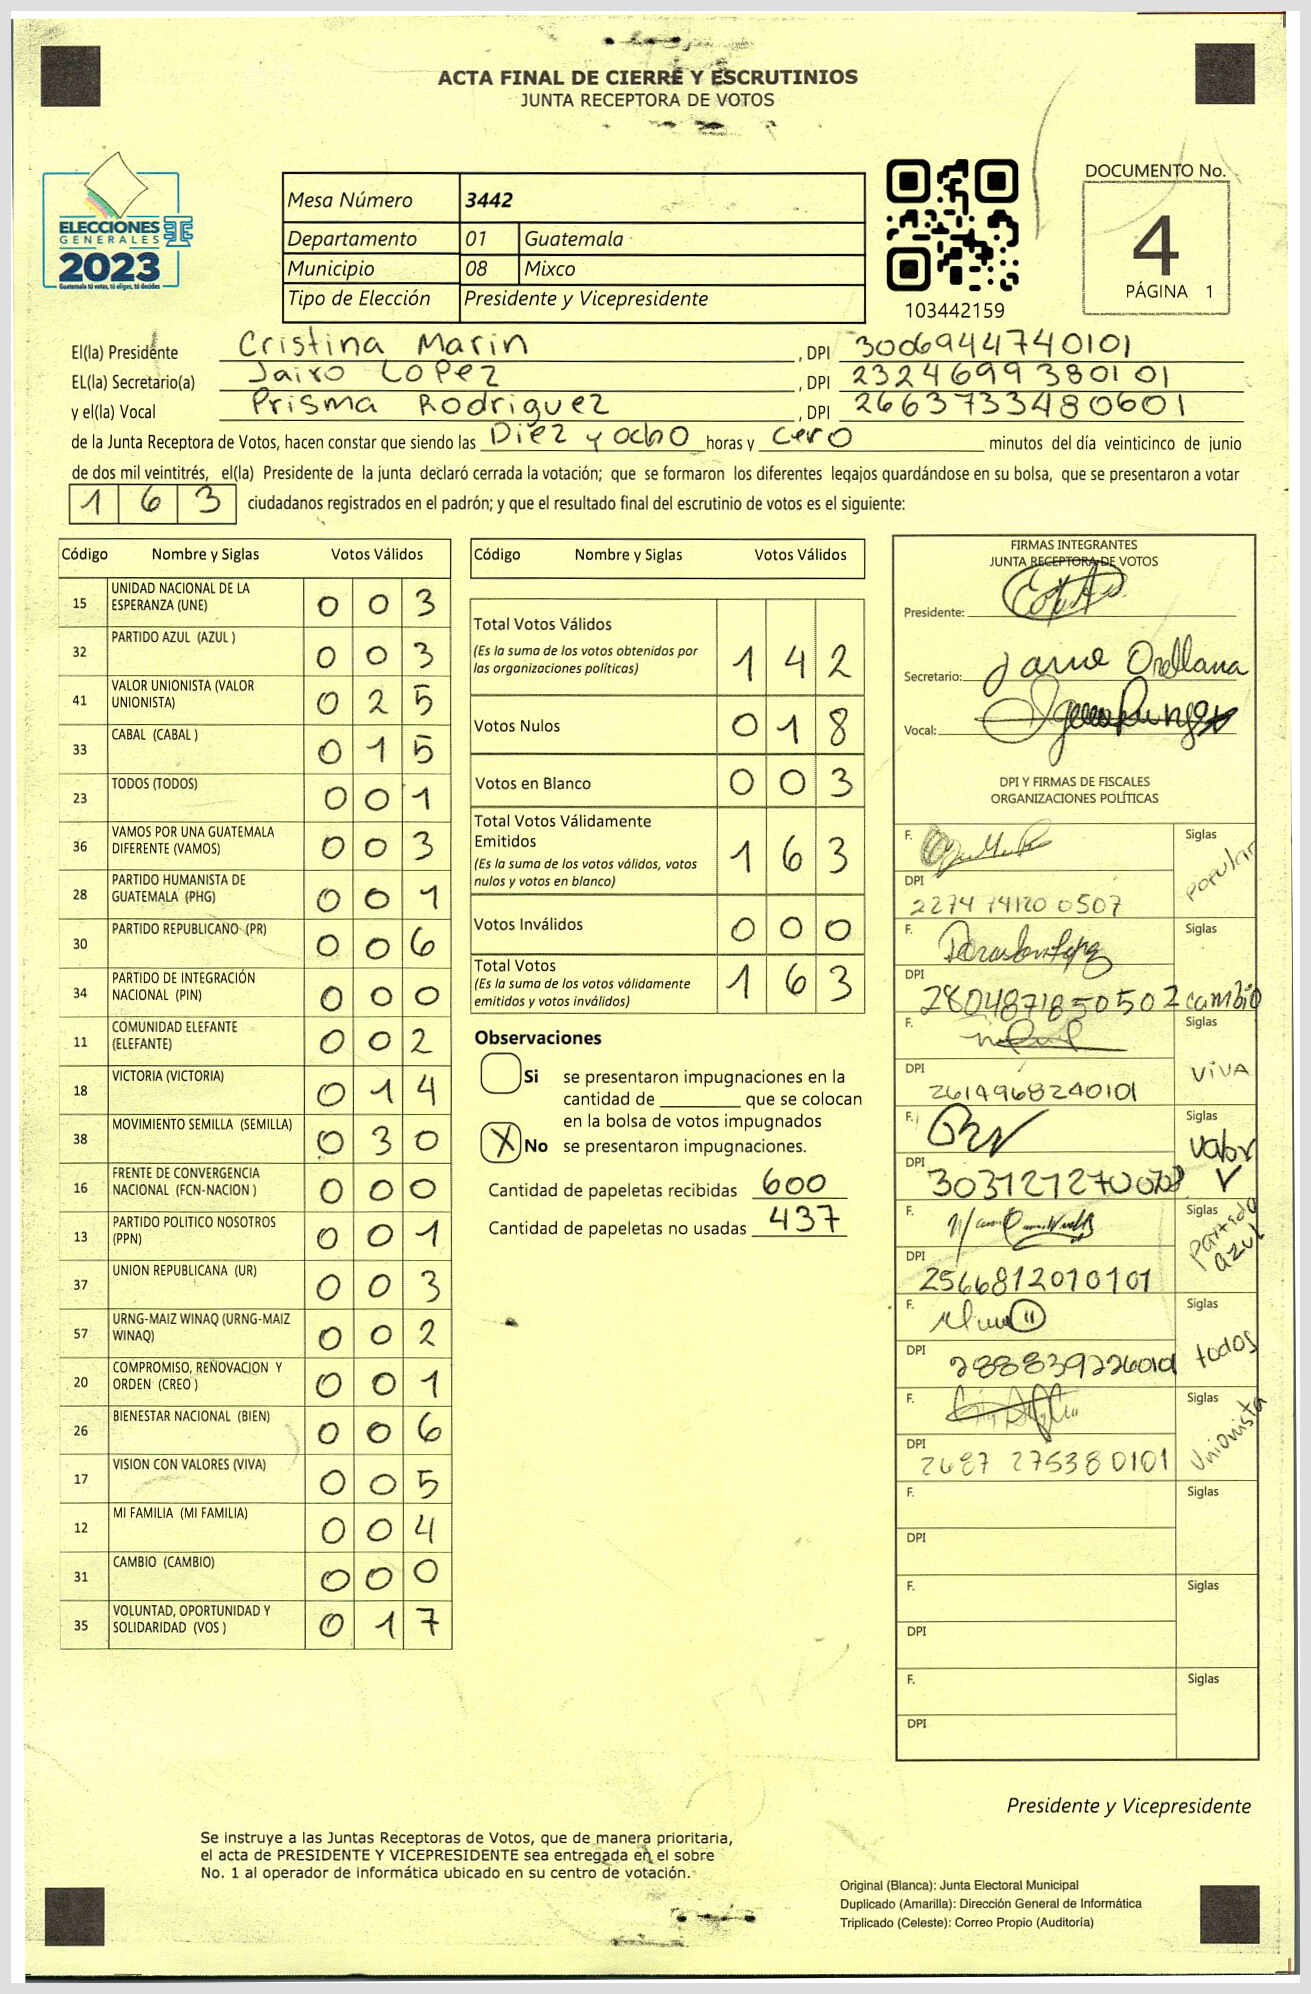 ACTA FINAL DE CIERRE Y ESCRUTINIOS
JUNTA RECEPTORA DE VOTOS
ELECCIONES
GENERALES
2023
Guatemala tú votas, tú eliges, tú decides
Mesa Número 3442
Departamento 01 Guatemala
Municipio 08 Mixco
Tipo de Elección Presidente y Vicepresidente
103442159
DOCUMENTO No.
4
PÁGINA 1
El(la) Presidente Cristina Marin , DPI 3006944740101
EL(la) Secretario(a) Jairo LOPez , DPI 2324699380101
y el(la) Vocal Prisma Rodriguez , DPI 2663733480601
de la Junta Receptora de Votos, hacen constar que siendo las Diez y ocho horas y cero minutos del día veinticinco de junio
de dos mil veintitrés, el(la) Presidente de la junta declaró cerrada la votación; que se formaron los diferentes legajos guardándose en su bolsa, que se presentaron a votar
163 ciudadanos registrados en el padrón; y que el resultado final del escrutinio de votos es el siguiente:
Código Nombre y Siglas Votos Válidos
15 UNIDAD NACIONAL DE LA ESPERANZA (UNE) 003
32 PARTIDO AZUL (AZUL ) 003
41 VALOR UNIONISTA (VALOR UNIONISTA) 025
33 CABAL (CABAL ) 015
23 TODOS (TODOS) 001
36 VAMOS POR UNA GUATEMALA DIFERENTE (VAMOS) 003
28 PARTIDO HUMANISTA DE GUATEMALA (PHG) 001
30 PARTIDO REPUBLICANO (PR) 006
34 PARTIDO DE INTEGRACIÓN NACIONAL (PIN) 000
11 COMUNIDAD ELEFANTE (ELEFANTE) 002
18 VICTORIA (VICTORIA) 014
38 MOVIMIENTO SEMILLA (SEMILLA) 030
16 FRENTE DE CONVERGENCIA NACIONAL (FCN-NACION ) 000
13 PARTIDO POLITICO NOSOTROS (PPN) 001
37 UNION REPUBLICANA (UR) 003
57 URNG-MAIZ WINAQ (URNG-MAIZ WINAQ) 002
20 COMPROMISO, RENOVACION Y ORDEN (CREO ) 001
26 BIENESTAR NACIONAL (BIEN) 006
17 VISION CON VALORES (VIVA) 005
12 MI FAMILIA (MI FAMILIA) 004
31 CAMBIO (CAMBIO) 000
35 VOLUNTAD, OPORTUNIDAD Y SOLIDARIDAD (VOS ) 017
Código Nombre y Siglas Votos Válidos
Total Votos Válidos 142
(Es la suma de los votos obtenidos por
las organizaciones políticas)
Votos Nulos 018
Votos en Blanco 003
Total Votos Válidamente
Emitidos 163
(Es la suma de los votos válidos, votos
nulos y votos en blanco)
Votos Inválidos 000
Total Votos 163
(Es la suma de los votos válidamente
emitidos y votos inválidos)
Observaciones
Si se presentaron impugnaciones en la
cantidad de ________ que se colocan
en la bolsa de votos impugnados
X No se presentaron impugnaciones.
Cantidad de papeletas recibidas 600
Cantidad de papeletas no usadas 437
FIRMAS INTEGRANTES
JUNTA RECEPTORA DE VOTOS
Presidente:
Secretario: Jaime Orellana
Vocal:
DPI Y FIRMAS DE FISCALES
ORGANIZACIONES POLÍTICAS
F. Siglas popular
DPI 2274 74120 0507
F. Siglas cambio
DPI 2804871850502
F. Siglas VIVA
DPI 2614968240101
F. Siglas valor
DPI
F. Siglas Partido azul
DPI 2566812010101
F. Siglas todos
DPI
F. Siglas Unionista
DPI 2687 275380101
F. Siglas
DPI
F. Siglas
DPI
F. Siglas
DPI
Presidente y Vicepresidente
Se instruye a las Juntas Receptoras de Votos, que de manera prioritaria,
el acta de PRESIDENTE Y VICEPRESIDENTE sea entregada en el sobre
No. 1 al operador de informática ubicado en su centro de votación.
Original (Blanca): Junta Electoral Municipal
Duplicado (Amarilla): Dirección General de Informática
Triplicado (Celeste): Correo Propio (Auditoría)